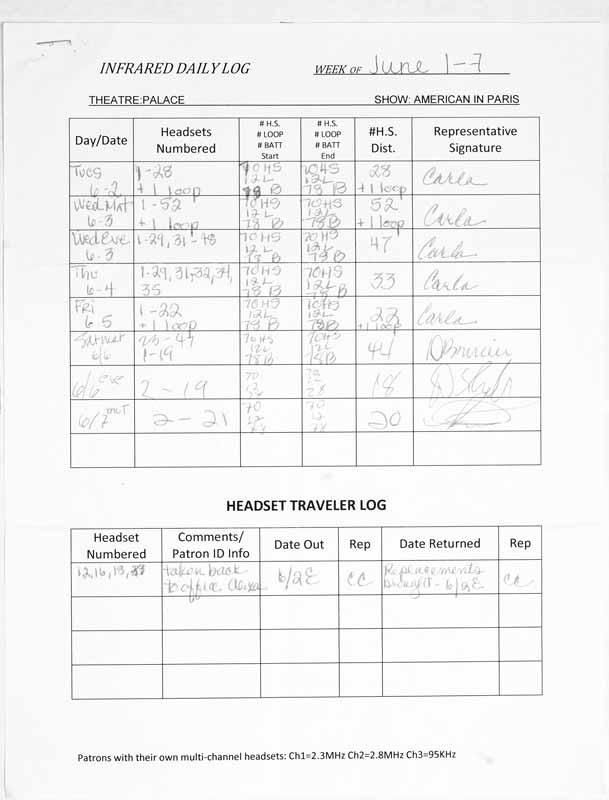 INFRARED DAILY LOG WEEK OF June 1-7
THEATRE:PALACE SHOW: AMERICAN IN PARIS
Day/Date Headsets Numbered # H.S. # LOOP # BATT Start # H.S. # LOOP # BATT End #H.S. Dist. Representative Signature
Tues 6-2 1-28 +1 loop 70HS 12L 78 B 70HS 12L 78 B 28 +1 loop Carla
Wed Mat 6-3 1-52 +1 loop 70HS 12L 78 B 70HS 12L 78B 52 +1 loop Carla
Wed Eve 6-3 1-29, 31-48 70HS 12L 78 B 70HS 12L 78 B 47 Carla
Thu 6-4 1-29, 31, 32, 34, 35 70HS 12L 78 B 70HS 12L 78 B 33 Carla
Fri 6 5 1-22 +1 loop 70HS 12L 78B 70HS 12L 78B 22 +1 loop Carla
Sat mat 6/6 1-19 70HS 12L 78B 70HS 12L 78B 44
6/6 eve 2-19 70 12 18
6/7 mat 2-21 70 12 78 70 12 78 20
HEADSET TRAVELER LOG
Headset Numbered Comments/ Patron ID Info Date Out Rep Date Returned Rep
12, 16, 19, taken back to office 6/2E CC Replacements brought - 6/2E CC
Patrons with their own multi-channel headsets: Ch1=2.3MHz Ch2=2.8MHz Ch3=95KHz